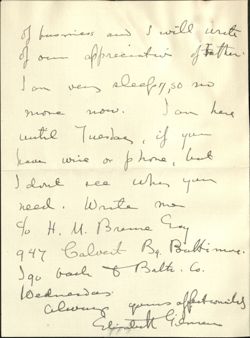 of business and I will write
of our appreciation of father.
I am very sleepy, so no
more now. I am here
until Tuesday, if you
have wire or phone, but
I dont see when you
need. Write me
c/o H. M. Brune Esq
947 Calvert Baltimore.
I go back to Balto. Co.
Wednesday.
Always yours affectionately
Elizabeth Gilman